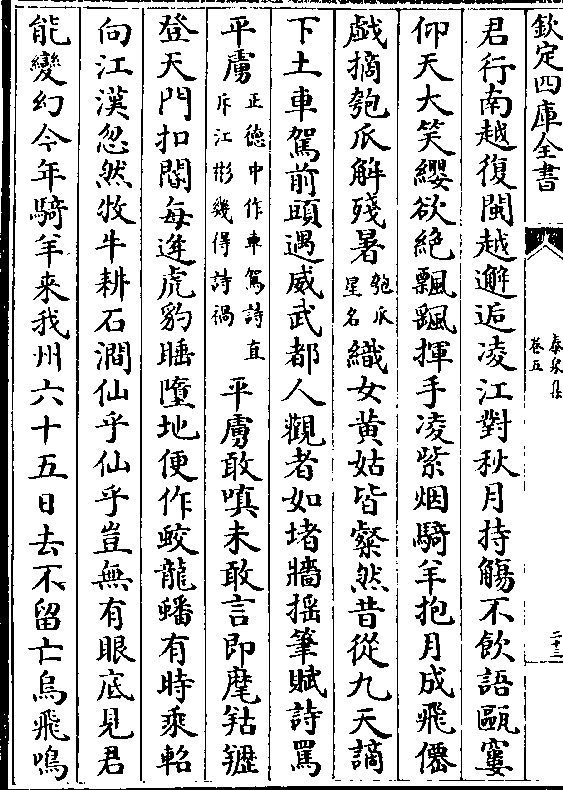 欽定四庫全書
泰泉集
卷五
二十三
君行南越復閩越邂逅凌江對秋月持觴不飲語甌窶
仰天大笑纓欲絶飄飄揮手凌紫烟騎羊抱月成飛僊
戲摘匏瓜解殘暑匏瓜星名織女黄姑皆粲然昔從九天謫
下土車駕前頭遇威武都人觀者如堵牆揺筆賦詩罵
平虜正德中作車駕詩直斥江彬幾得詩禍平虜敢嗔未敢言即麾䍩䍦
登天門扣閽每逢虎豹睡墮地便作蛟龍蟠有時乘軺
向江漢忽然牧牛耕石澗仙乎仙乎豈無有眼底見君
能變幻今年騎羊來我州六十五日去不留亡烏飛鳴